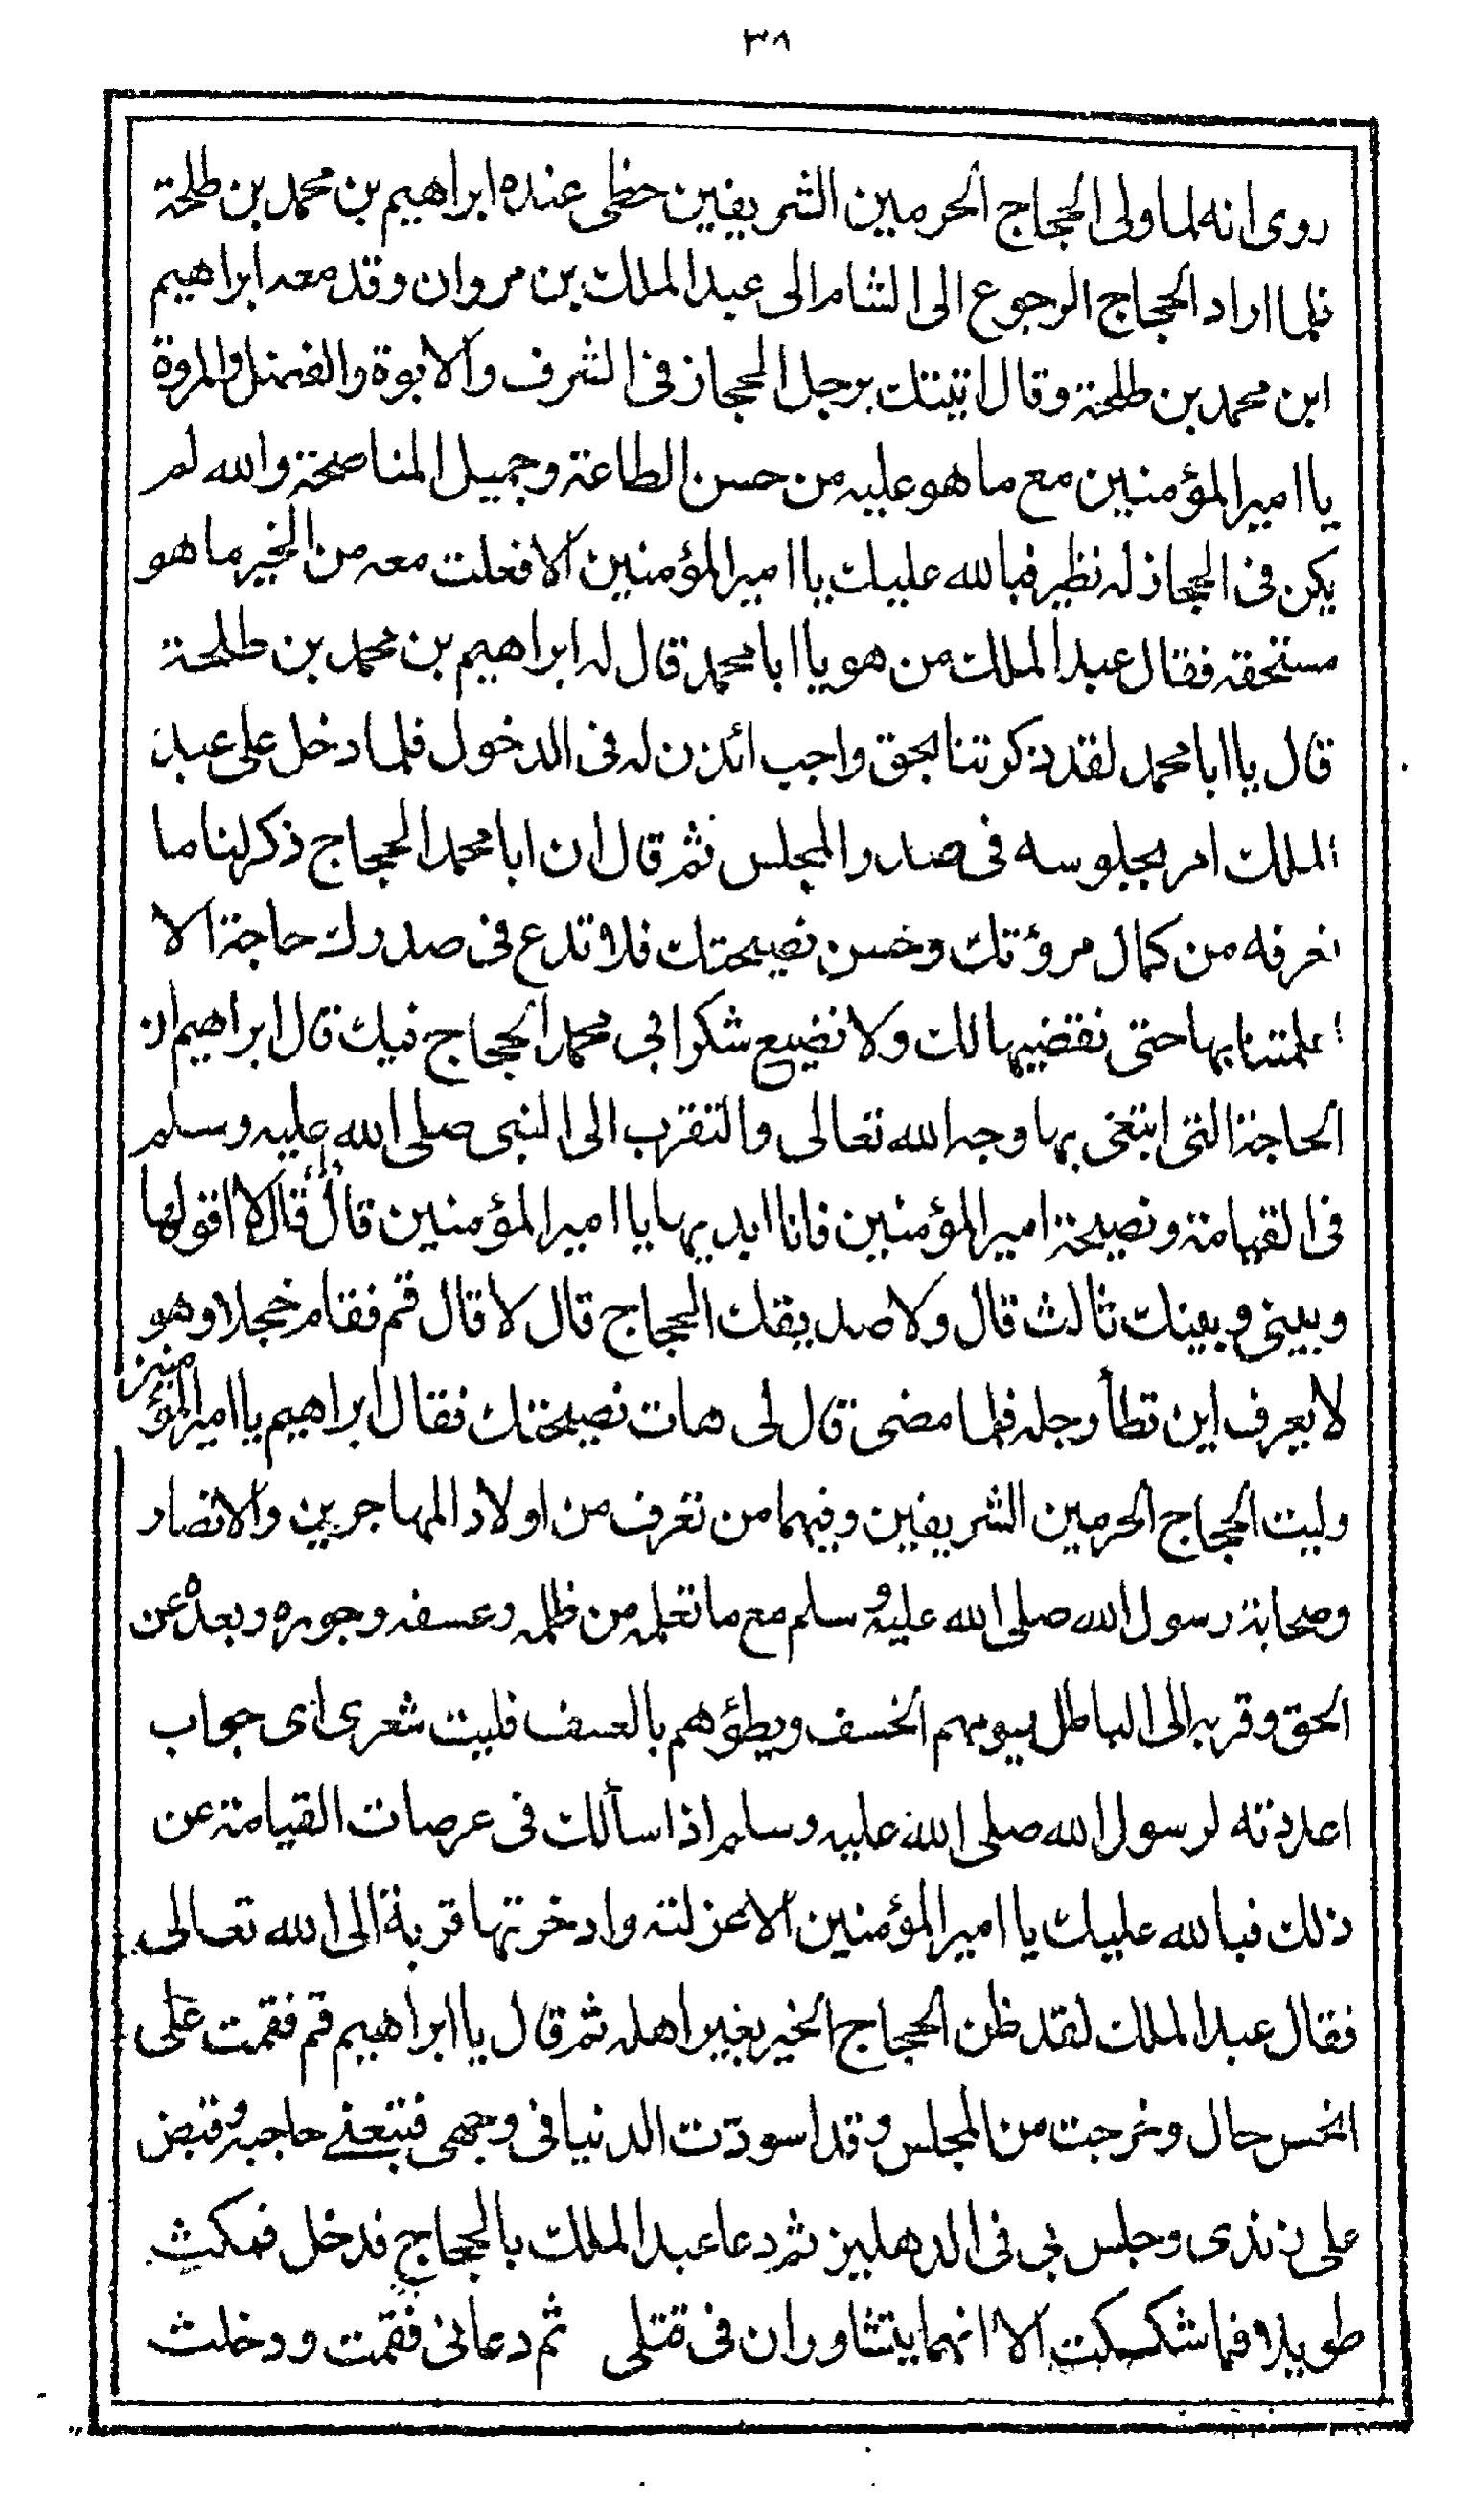 ٣٨
روى انه لما ولى الحجاج الحرمين الشريفين حظى عنده ابراهيم بن محمد بن طلحة
فلما اراد الحجاج الرجوع الى الشام الى عبد الملك بن مروان وقد معه ابراهيم
ابن محمد بن طلحة وقال اتيتك برجل الحجاز فى الشرف والابوة والفضل والمروة
يا امير المؤمنين مع ما هو عليه من حسن الطاعة وجميل المناصحة والله لم
يكن فى الحجاز له نظير فبالله عليك يا امير المؤمنين الا فعلت معه من الخير ما هو
مستحقه فقال عبد الملك من هو يا ابا محمد قال له ابراهيم بن محمد بن طلحة
قال يا ابا محمد لقد ذكرتنا بحق واجب ائذن له فى الدخول فلما دخل على عبد
الملك امر بجلوسه فى صدر المجلس ثم قال ان ابا محمد الحجاج ذكر لنا ما
نعرفه من كمال مروؤتك وحسن نصيحتك فلا تدع فى صدرك حاجة الا
اعلمتنا بها حتى نقضيها لك ولا نضيع شكر ابى محمد الحجاج فيك قال ابراهيم ان
الحاجة التى ابتغى بها وجه الله تعالى والتقرب الى النبى صلى الله عليه وسلم
فى القيامة ونصيحة امير المؤمنين فانا ابديها يا امير المؤمنين قال قال لا اقولها
وبينى وبينك ثالث قال ولا صديقك الحجاج قال لا قال قم فقام خجلا وهو
لا يعرف اين تطأ رجله فلما مضى قال لى هات نصيحتك فقال ابراهيم يا امير المؤمنين
وليت الحجاج الحرمين الشريفين وفيهما من تعرف من اولاد المهاجرين والانصار
وصحابة رسول الله صلى الله عليه وسلم مع ما تعلمه من ظلمه وعسفه وجوره وبعده عن
الحق وقربه الى الباطل يسومهم الخسف ويطؤهم بالعسف فليت شعرى اى جواب
اعددته لرسول الله صلى الله عليه وسلم اذا سألك فى عرصات القيامة عن
ذلك فبالله عليك يا امير المؤمنين الا عزلته وادخرتها قربة الى الله تعالى
فقال عبد الملك لقد ظن الحجاج الخير بغير اهله ثم قال يا ابراهيم قم فقمت على
انحس حال وخرجت من المجلس وقد اسودت الدنيا فى وجهى فتبعنى حاجبه وقبض
على زندى وجلس بى فى الدهليز ثم دعا عبد الملك بالحجاج فدخل فمكث
طويلا فما شككت الا انهما يتشاوران فى قتلى ثم دعانى فقمت ودخلت